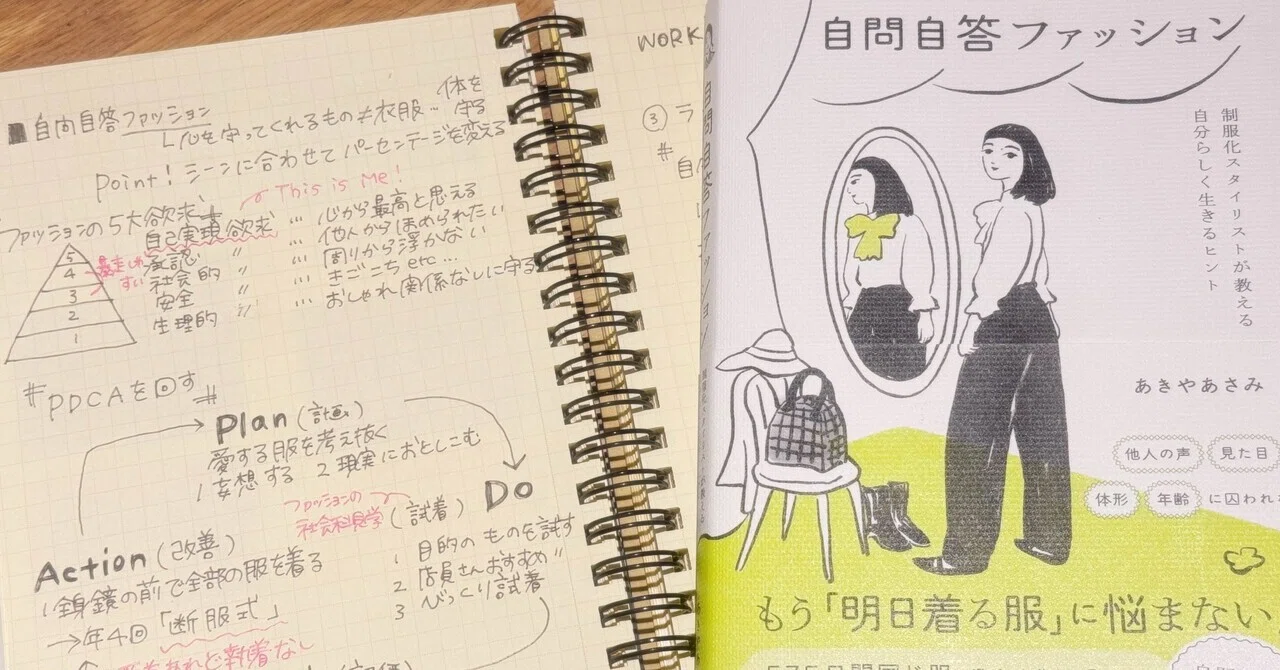 ■自問自答ファッション
└心を守ってくれるもの≠衣服…体を守る
Point! シーンに合わせてパーセンテージを変える
This is Me!
ファッションの5大欲求
5 自己実現欲求 … 心から最高と思える
4 承認 〃 … 他人からほめられたい
3 社会的 〃 … 周りから浮かない
2 安全 〃 … きごこち etc…
1 生理的 〃 … おしゃれ関係なしに守る
暴走しやすい
#PDCAを回す#
Plan (計画)
愛する服を考え抜く
1 妄想する 2 現実におとしこむ
Do
ファッションの
社会科見学 (試着)
1 目的のものを試す
2 店員さんおすすめ 〃
3 びっくり試着
Action (改善)
1 鏡の前で全部の服を着る
→年4回「断服式」
執着なし
WORK
③ ラ
#
自問自答ファッション
制服化スタイリストが教える
自分らしく生きるヒント
あきやあさみ
他人の声 見た目
体形 年齢 に囚われ
もう「明日着る服」に悩まない
自問自答ファッション